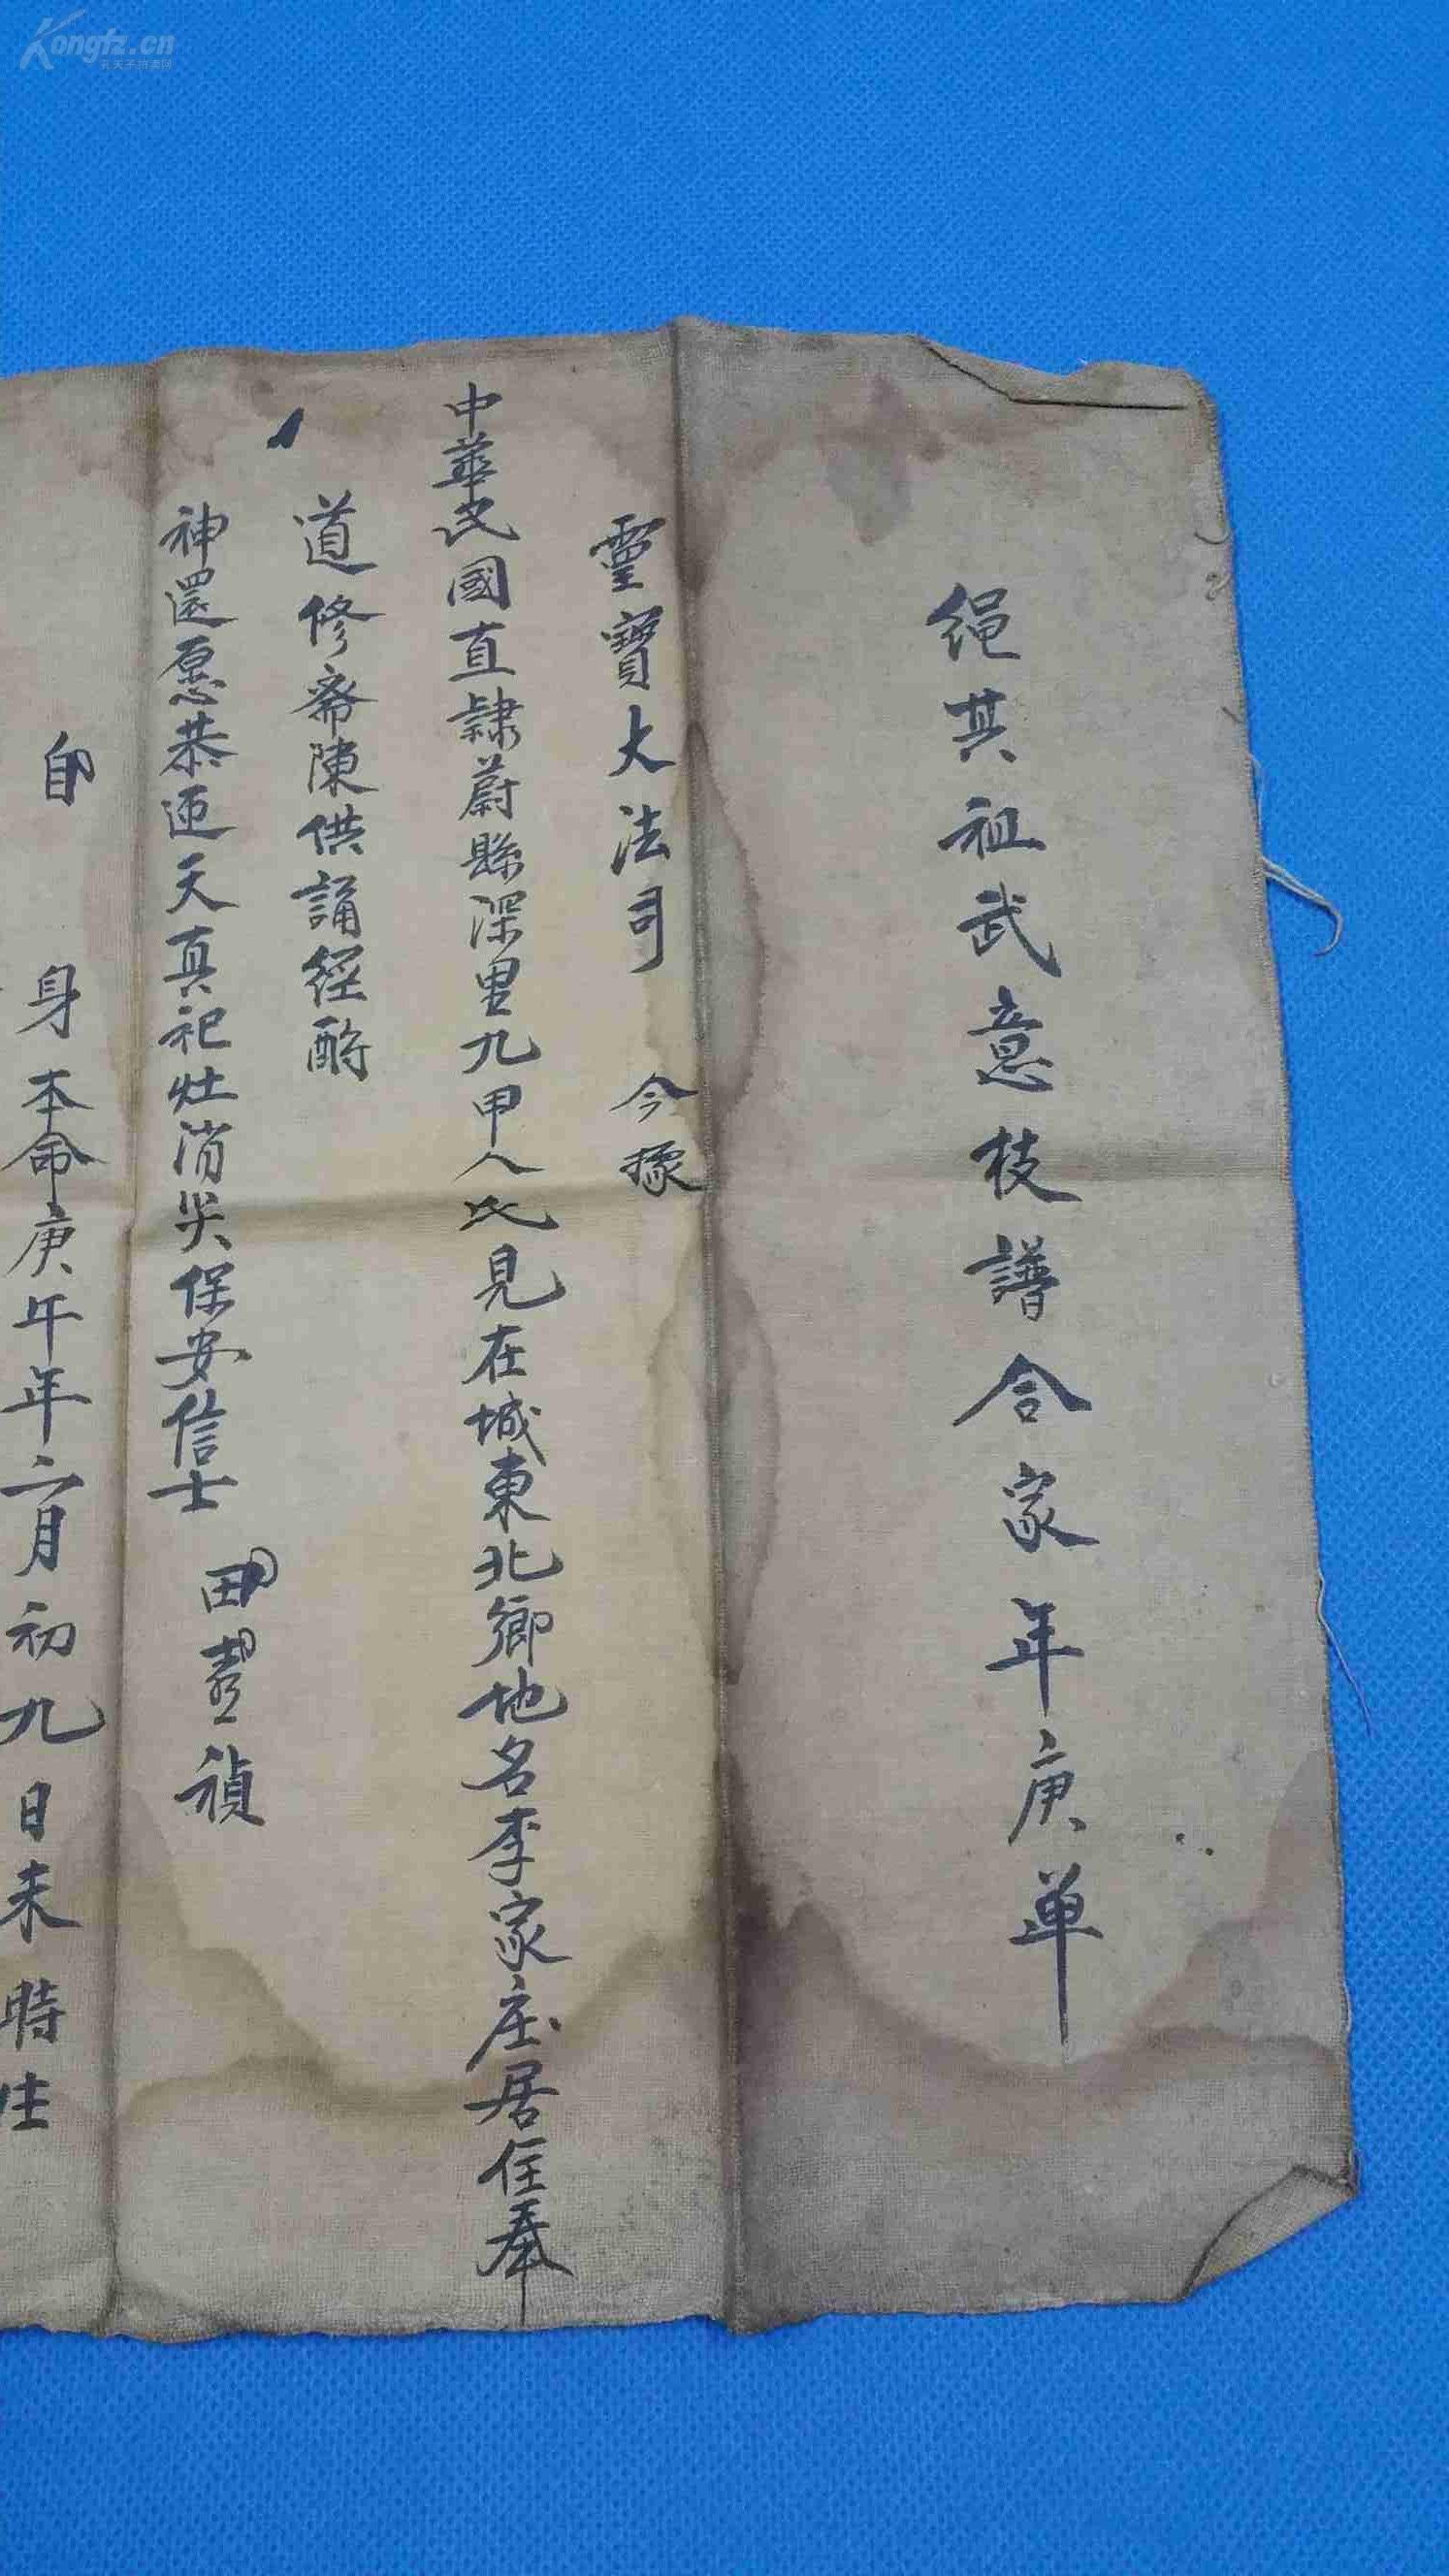 Kongfz.cn
孔夫子拍卖网
绳其祖武意枝譜合家年庚单
靈寶大法司 今據
中華民國直隸蔚縣深里九甲人氏見在城東北鄉地名李家庄居住奉
道修齋陳供誦經酧
神還愿恭迎天真祀灶消灾保安信士 田 禎
自身本命庚午年六月初九日未時生